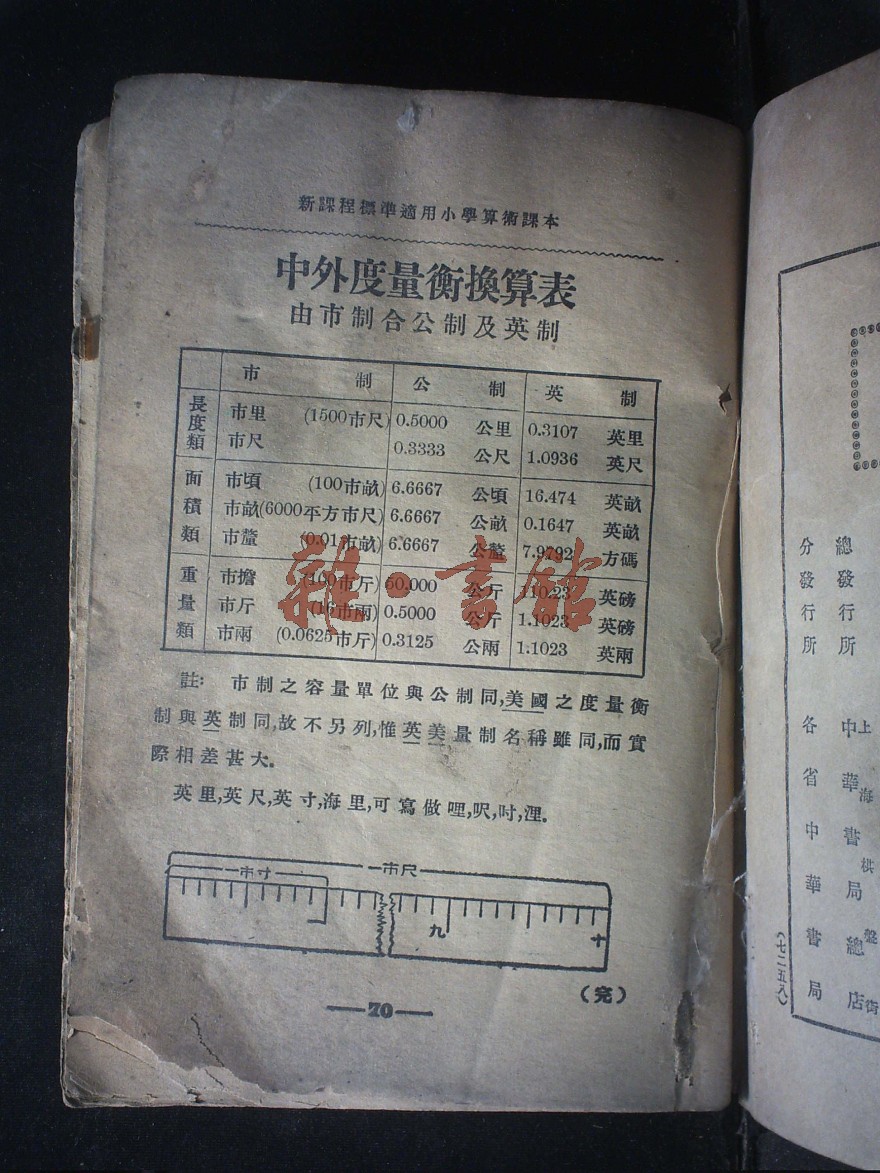 新課程標準適用小學算術課本
中外度量衡換算表
由市制合公制及英制
市制 公制 英制
長度類
市里 (1500市尺) 0.5000 公里 0.3107 英里
市尺 0.3333 公尺 1.0936 英尺
面積類
市頃 (100市畝) 6.6667 公頃 16.474 英畝
市畝(6000平方市尺) 6.6667 公畝 0.1647 英畝
市釐 (0.01市畝) 6.6667 公釐 7.9792 方碼
重量類
市擔 (100市斤) 50.000 公斤 110.23 英磅
市斤 (16市兩) 0.5000 公斤 1.1023 英磅
市兩 (0.0625市斤) 0.3125 公兩 1.1023 英兩
註: 市制之容量單位與公制同,美國之度量衡
制與英制同,故不另列,惟英美量制名稱雖同,而實
際相差甚大。
英里,英尺,英寸,海里,可寫做哩,呎,吋,浬。
一市尺
一市寸
九
十
(完)
—70—
雜·書館
總發行所 上海棋盤街 中華書局總店
分發行所 各省中華書局
(七二五八)